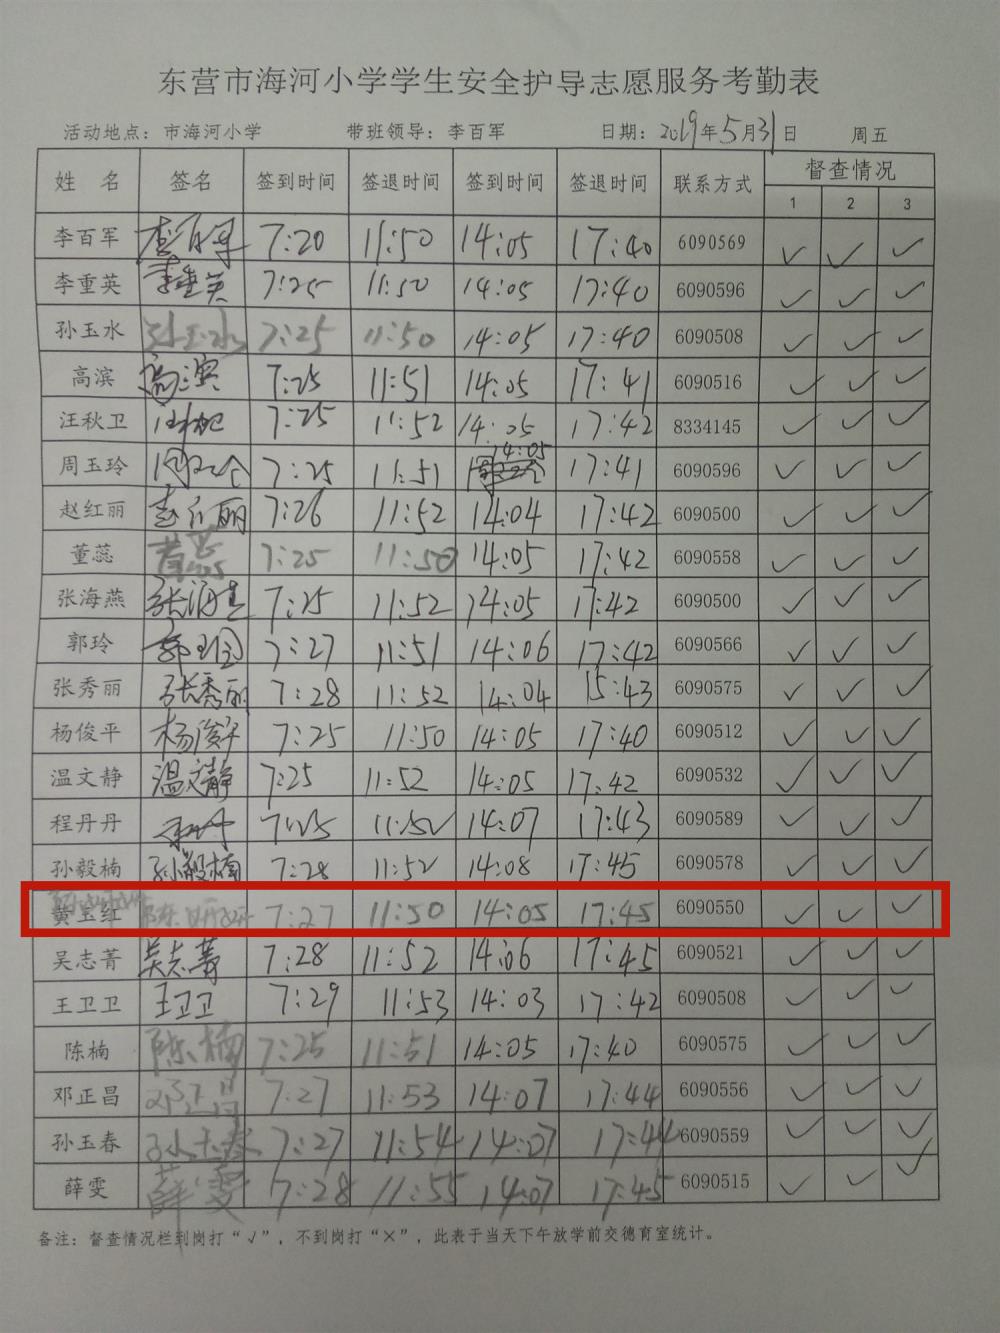 东营市海河小学学生安全护导志愿服务考勤表
活动地点：市海河小学 带班领导：李百军 日期：2019年5月31日 周五
姓 名 签名 签到时间 签退时间 签到时间 签退时间 联系方式 督查情况
1 2 3
李百军 李百军 7:20 11:50 14:05 17:40 6090569 ✓ ✓ ✓
李重英 李重英 7:25 11:50 14:05 17:40 6090596 ✓ ✓ ✓
孙玉水 孙玉水 7:25 11:50 14:05 17:40 6090508 ✓ ✓ ✓
高滨 高滨 7:25 11:51 14:05 17:41 6090516 ✓ ✓ ✓
汪秋卫 7:25 11:52 14:05 17:42 8334145 ✓ ✓ ✓
周玉玲 周玉玲 7:25 11:51 14:05 17:41 6090596 ✓ ✓ ✓
赵红丽 赵红丽 7:26 11:52 14:04 17:42 6090500 ✓ ✓ ✓
董蕊 董蕊 7:25 11:50 14:05 17:42 6090558 ✓ ✓ ✓
张海燕 张海燕 7:25 11:52 14:05 17:42 6090500 ✓ ✓ ✓
郭玲 郭玲 7:27 11:51 14:06 17:42 6090566 ✓ ✓ ✓
张秀丽 张秀丽 7:28 11:52 14:04 15:43 6090575 ✓ ✓ ✓
杨俊平 杨俊平 7:25 11:50 14:05 17:40 6090512 ✓ ✓ ✓
温文静 温文静 7:25 11:52 14:05 17:42 6090532 ✓ ✓ ✓
程丹丹 7:25 11:52 14:07 17:43 6090589 ✓ ✓ ✓
孙毅楠 孙毅楠 7:28 11:52 14:08 17:45 6090578 ✓ ✓ ✓
黄玉红 陈妍妍 7:27 11:50 14:05 17:45 6090550 ✓ ✓ ✓
吴志菁 吴志菁 7:28 11:52 14:06 17:45 6090521 ✓ ✓ ✓
王卫卫 王卫卫 7:29 11:53 14:03 17:42 6090508 ✓ ✓ ✓
陈楠 陈楠 7:25 11:51 14:05 17:40 6090575 ✓ ✓ ✓
邓正昌 邓正昌 7:27 11:53 14:07 17:44 6090556 ✓ ✓ ✓
孙玉春 孙玉春 7:27 11:54 14:07 17:44 6090559 ✓ ✓ ✓
薛雯 薛雯 7:28 11:55 14:07 17:45 6090515 ✓ ✓ ✓
备注：督查情况栏到岗打“√”，不到岗打“×”，此表于当天下午放学前交德育室统计。